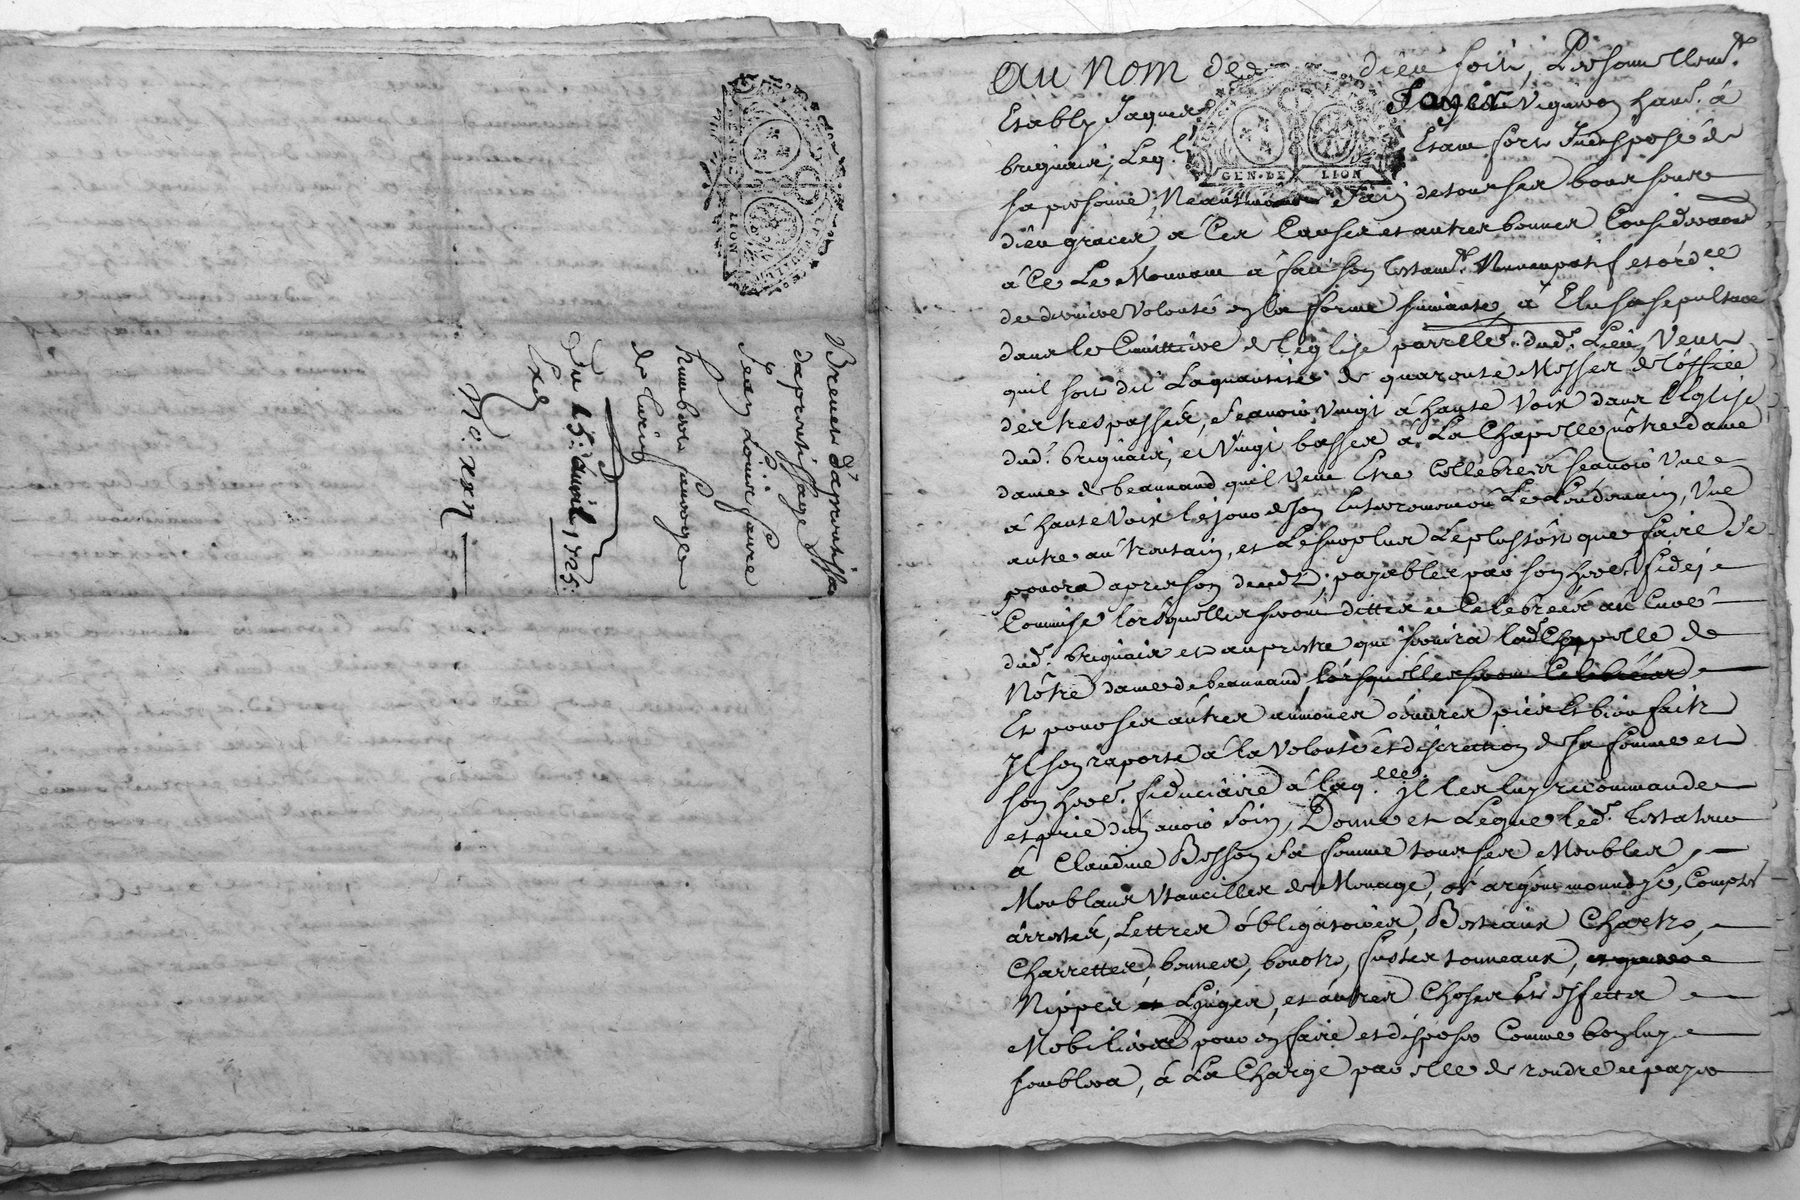 Brevet d'aprentissa
d'aprentissage
Jean Louis faure
humbert sauvage
de
Du 15: auril 1725:
GEN·DE LION
Au Nom de dieu soit, Personnellemt.
Estably Jaques Vigneron hant. à
brignais, Leql. Estant fort Indisposé de
sa personne, Neantmoins sain de tous ses bons sens
dieu graces, à Ces Causes et autres bonnes Considerations
à Ce Le Mouvant à fait son testamt. Nuncupatif et ordce
de derniere Volonté en la forme suivante, à Elu sa sepulture
dans le Cimittiere de l'église parrelle. dudt. Lieu, Veut
quil soit dit La quantité de quarante Messes de l'office
des trespassés, scavoir Vingt à haute Voix dans l'Eglise
dudt. brignais, et Vingt basses à La Chapelle nôtre dame
dame de beaunand quil Veut Etre Cellebrées scavoir Une
à haute Voix le jour de son Enterrement ou Le Lendemain, Une
autre au Troutain, et Le surplus Le plustôt que faire se
poura apres son decedz payables par son here. fidei
Commise lorsquelles seront dittes et Celebrées au Curé
dudt. brignais et au prestre qui servira ladt. Chappelle de
Nôtre dame de beaunand lorsquelles seront Celebrées
Et pour ses autres aumones oeuvres pies Et bienfaits
Il s'en raporte à la Volonté et discrettion de sa femme et
son here. fiduciaire à laqlle. il les luy recommande
et prie d'en avoir soin, Donne et Legue ledt. testateur
à Claudine Besson sa femme tous ses Meubles,
Meublans Utancilles de Menage, or argent monnoyé, Comptes
arrestés, Lettres obligatoires, Bestiaux Chars,
Charrettes, bennes, tonneaux,
Nippes et Linges, et autres Choses Et effetts
Mobiliers pour en faire et disposer Comme bon luy
semblera, à La Charge par elle de rendre et payer